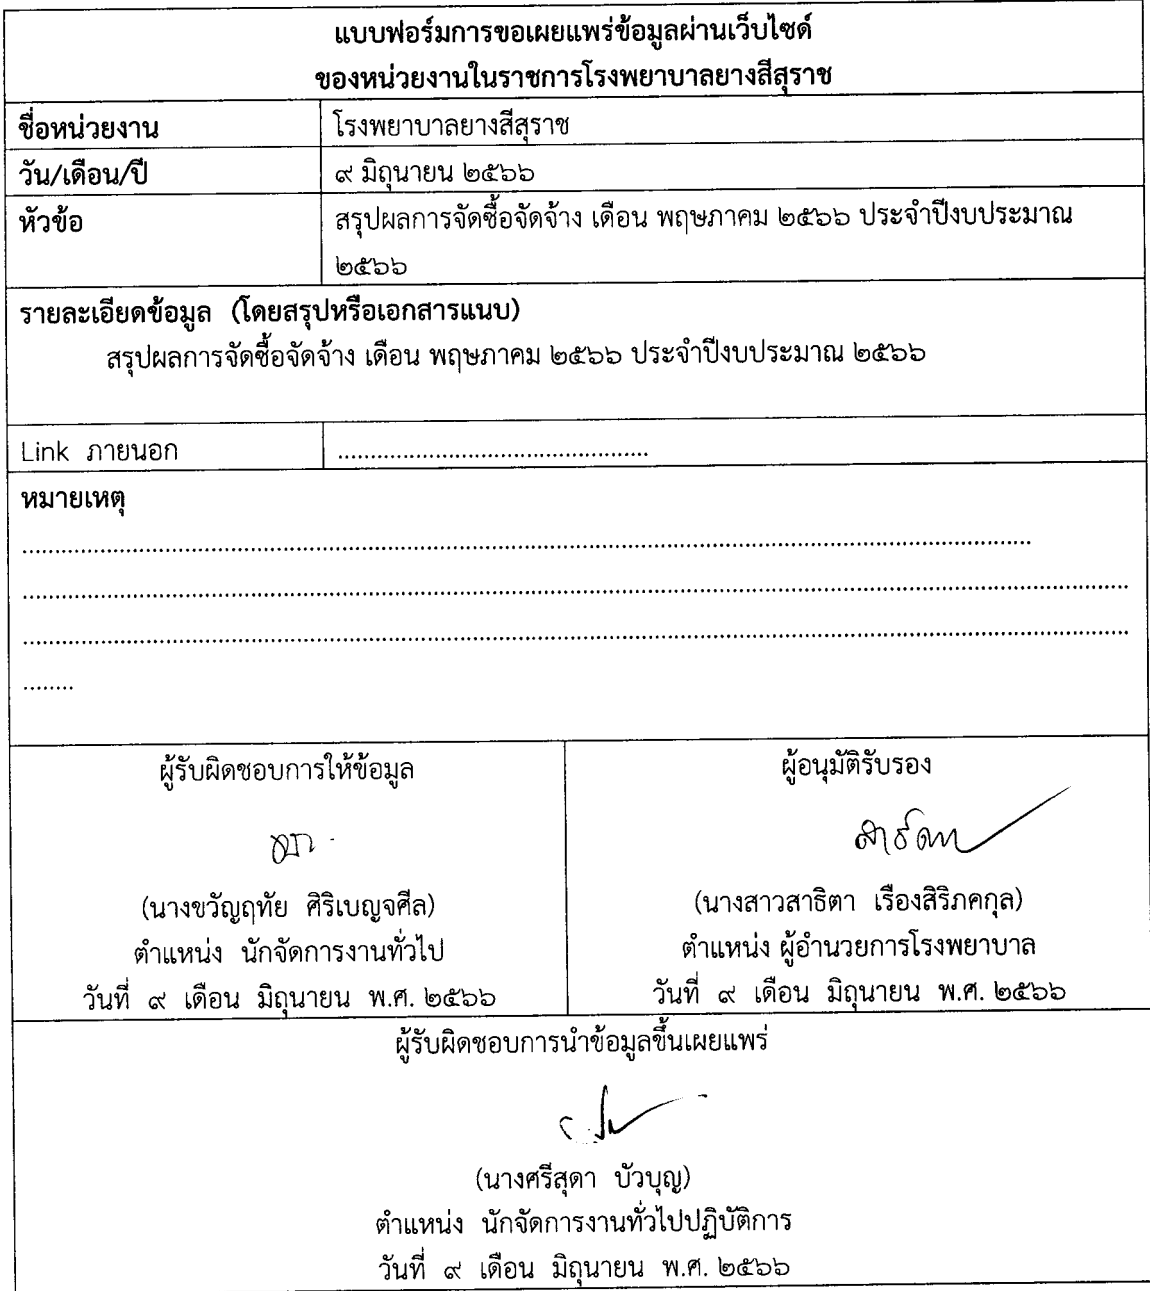 แบบฟอร์มการขอเผยแพร่ข้อมูลผ่านเว็บไซด์
ของหน่วยงานในราชการโรงพยาบาลยางสีสุราช
ชื่อหน่วยงาน โรงพยาบาลยางสีสุราช
วัน/เดือน/ปี ๙ มิถุนายน ๒๕๖๖
หัวข้อ สรุปผลการจัดซื้อจัดจ้าง เดือน พฤษภาคม ๒๕๖๖ ประจำปีงบประมาณ
๒๕๖๖
รายละเอียดข้อมูล (โดยสรุปหรือเอกสารแนบ)
สรุปผลการจัดซื้อจัดจ้าง เดือน พฤษภาคม ๒๕๖๖ ประจำปีงบประมาณ ๒๕๖๖
Link ภายนอก ................................................
หมายเหตุ
ผู้รับผิดชอบการให้ข้อมูล
(นางขวัญฤทัย ศิริเบญจศีล)
ตำแหน่ง นักจัดการงานทั่วไป
วันที่ ๙ เดือน มิถุนายน พ.ศ. ๒๕๖๖
ผู้อนุมัติรับรอง
(นางสาวสาธิตา เรืองสิริภคกุล)
ตำแหน่ง ผู้อำนวยการโรงพยาบาล
วันที่ ๙ เดือน มิถุนายน พ.ศ. ๒๕๖๖
ผู้รับผิดชอบการนำข้อมูลขึ้นเผยแพร่
(นางศรีสุดา บัวบุญ)
ตำแหน่ง นักจัดการงานทั่วไปปฏิบัติการ
วันที่ ๙ เดือน มิถุนายน พ.ศ. ๒๕๖๖